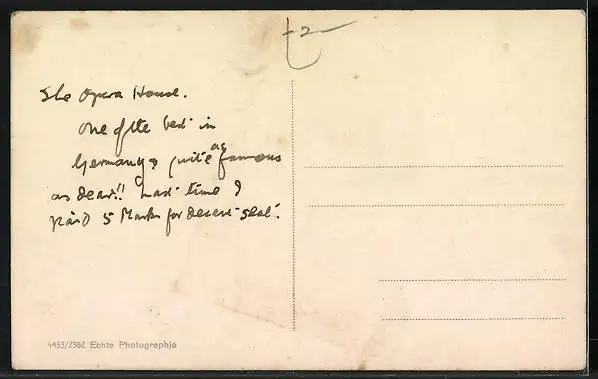 t2
The Opera House.
One of the best in
Germany & quite as famous
as dear!! Last time I
Paid 5 Marks for decent seat.
4453/2362 Echte Photographie